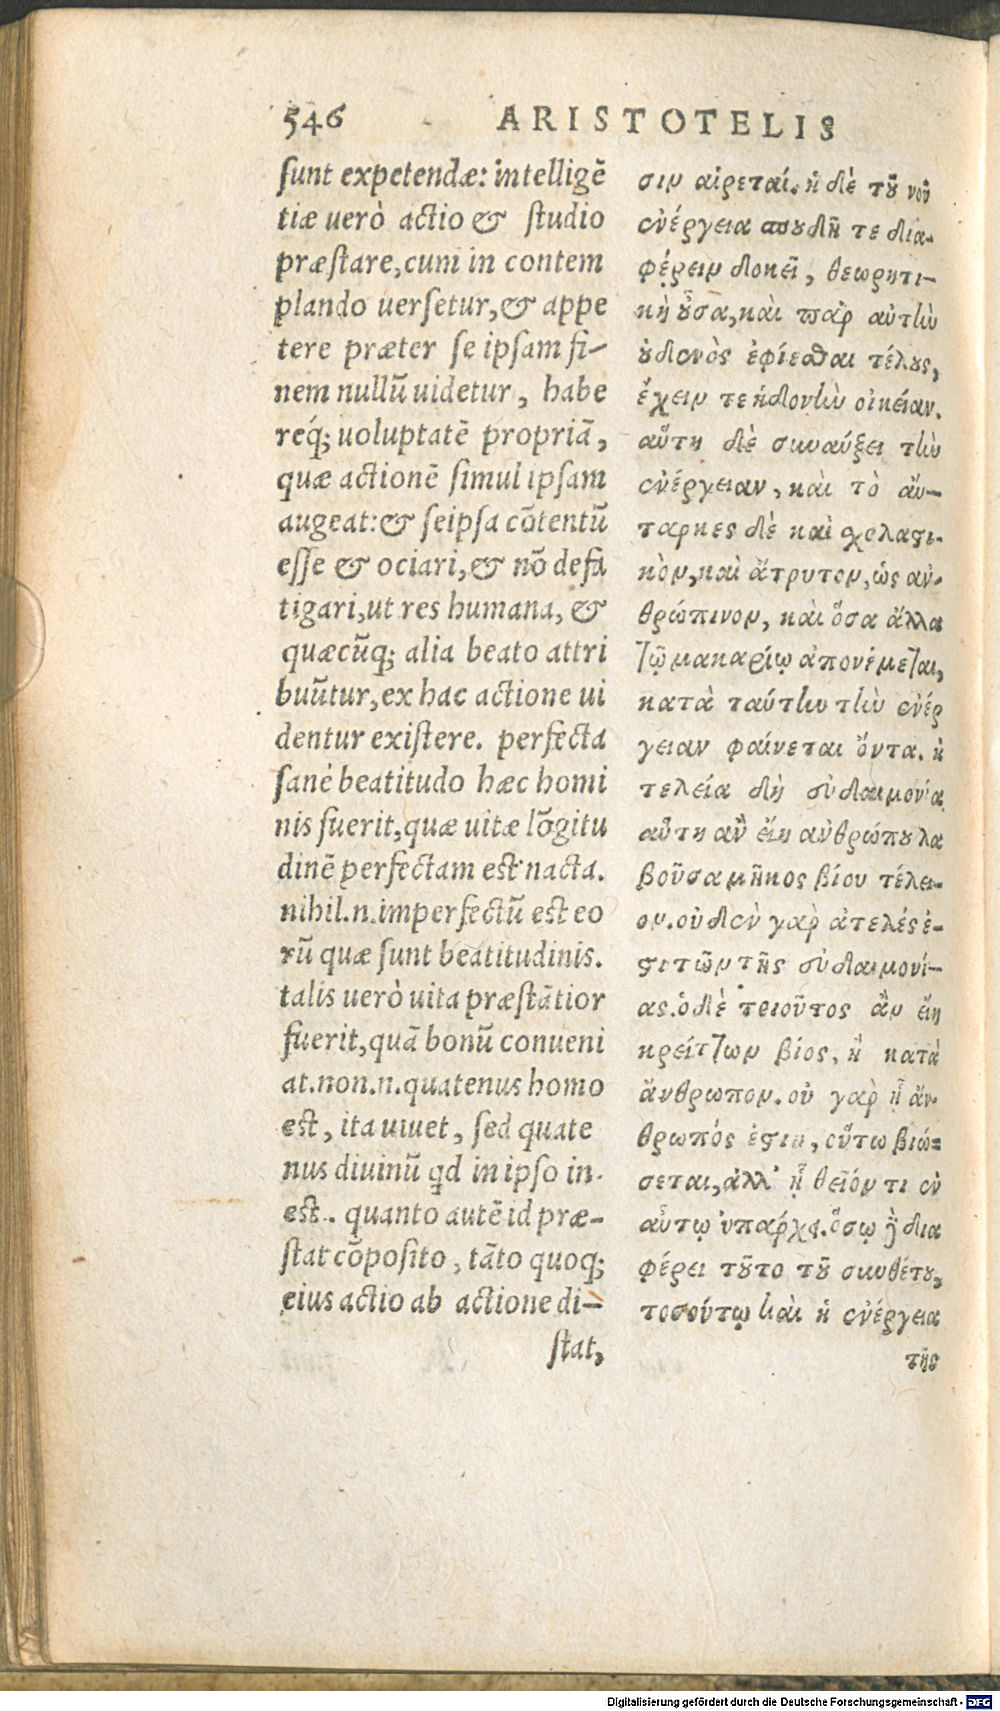 546 ARISTOTELIS
sunt expetendæ: intelligẽ
tiæ uerò actio & studio
præstare, cum in contem
plando uersetur, & appe
tere præter se ipsam fi-
nem nullũ uidetur, habe
req́; uoluptatẽ propriã,
quæ actionẽ simul ipsam
augeat: & seipsa cõtentũ
esse & ociari, & nõ defa
tigari, ut res humana, &
quæcũq; alia beato attri
buũtur, ex hac actione ui
dentur existere. perfecta
sanè beatitudo hæc homi
nis fuerit, quæ uitæ lõgitu
dinẽ perfectam est nacta.
nihil .n. imperfectũ est eo
rũ quæ sunt beatitudinis.
talis uerò uita præstãtior
fuerit, quã bonũ conueni
at. non .n. quatenus homo
est, ita uiuet, sed quate
nus diuinũ qd in ipso in-
est. quanto autẽ id præ-
stat cõposito, tãto quoq;
eius actio ab actione di-
stat,
σιν αἱρεταί. ἡ δὲ τοῦ νοῦ
ἐνέργεια σπουδῇ τε δια-
φέρειν δοκεῖ, θεωρητι-
κὴ οὖσα, καὶ παρ αὐτὴν
οὐδενὸς ἐφίεσθαι τέλους,
ἔχειν τε ἡδονὴν οἰκείαν.
αὕτη δὲ συναύξει τὴν
ἐνέργειαν, καὶ τὸ ἄυ-
ταρκες δὲ καὶ σχολαστι-
κὸν, καὶ ἄτρυτον, ὡς ἀν-
θρώπινον, καὶ ὅσα ἄλλα
τῷ μακαρίῳ ἀπονέμεται,
κατὰ ταύτην τὴν ἐνέρ
γειαν φαίνεται ὄντα. ἡ
τελεία δὴ εὐδαιμονία
αὕτη ἂν εἴη ἀνθρώπου λα
βοῦσα μῆκος βίου τέλει-
ον. οὐδὲν γὰρ ἀτελές ἐ-
στι τῶν τῆς εὐδαιμονί-
ας. ὁ δὲ τοιοῦτος ἂν εἴη
κρείττων βίος, ἢ κατὰ
ἄνθρωπον. οὐ γὰρ ᾗ ἄν-
θρωπός ἐστιν, οὕτω βιώ-
σεται, ἀλλ' ᾗ θεῖόν τι ἐν
αὐτῷ ὑπάρχει. ὅσῳ δὲ δια
φέρει τοῦτο τοῦ συνθέτου,
τοσούτῳ καὶ ἡ ἐνέργεια
τῆς
Digitalisierung gefördert durch die Deutsche Forschungsgemeinschaft - DFG